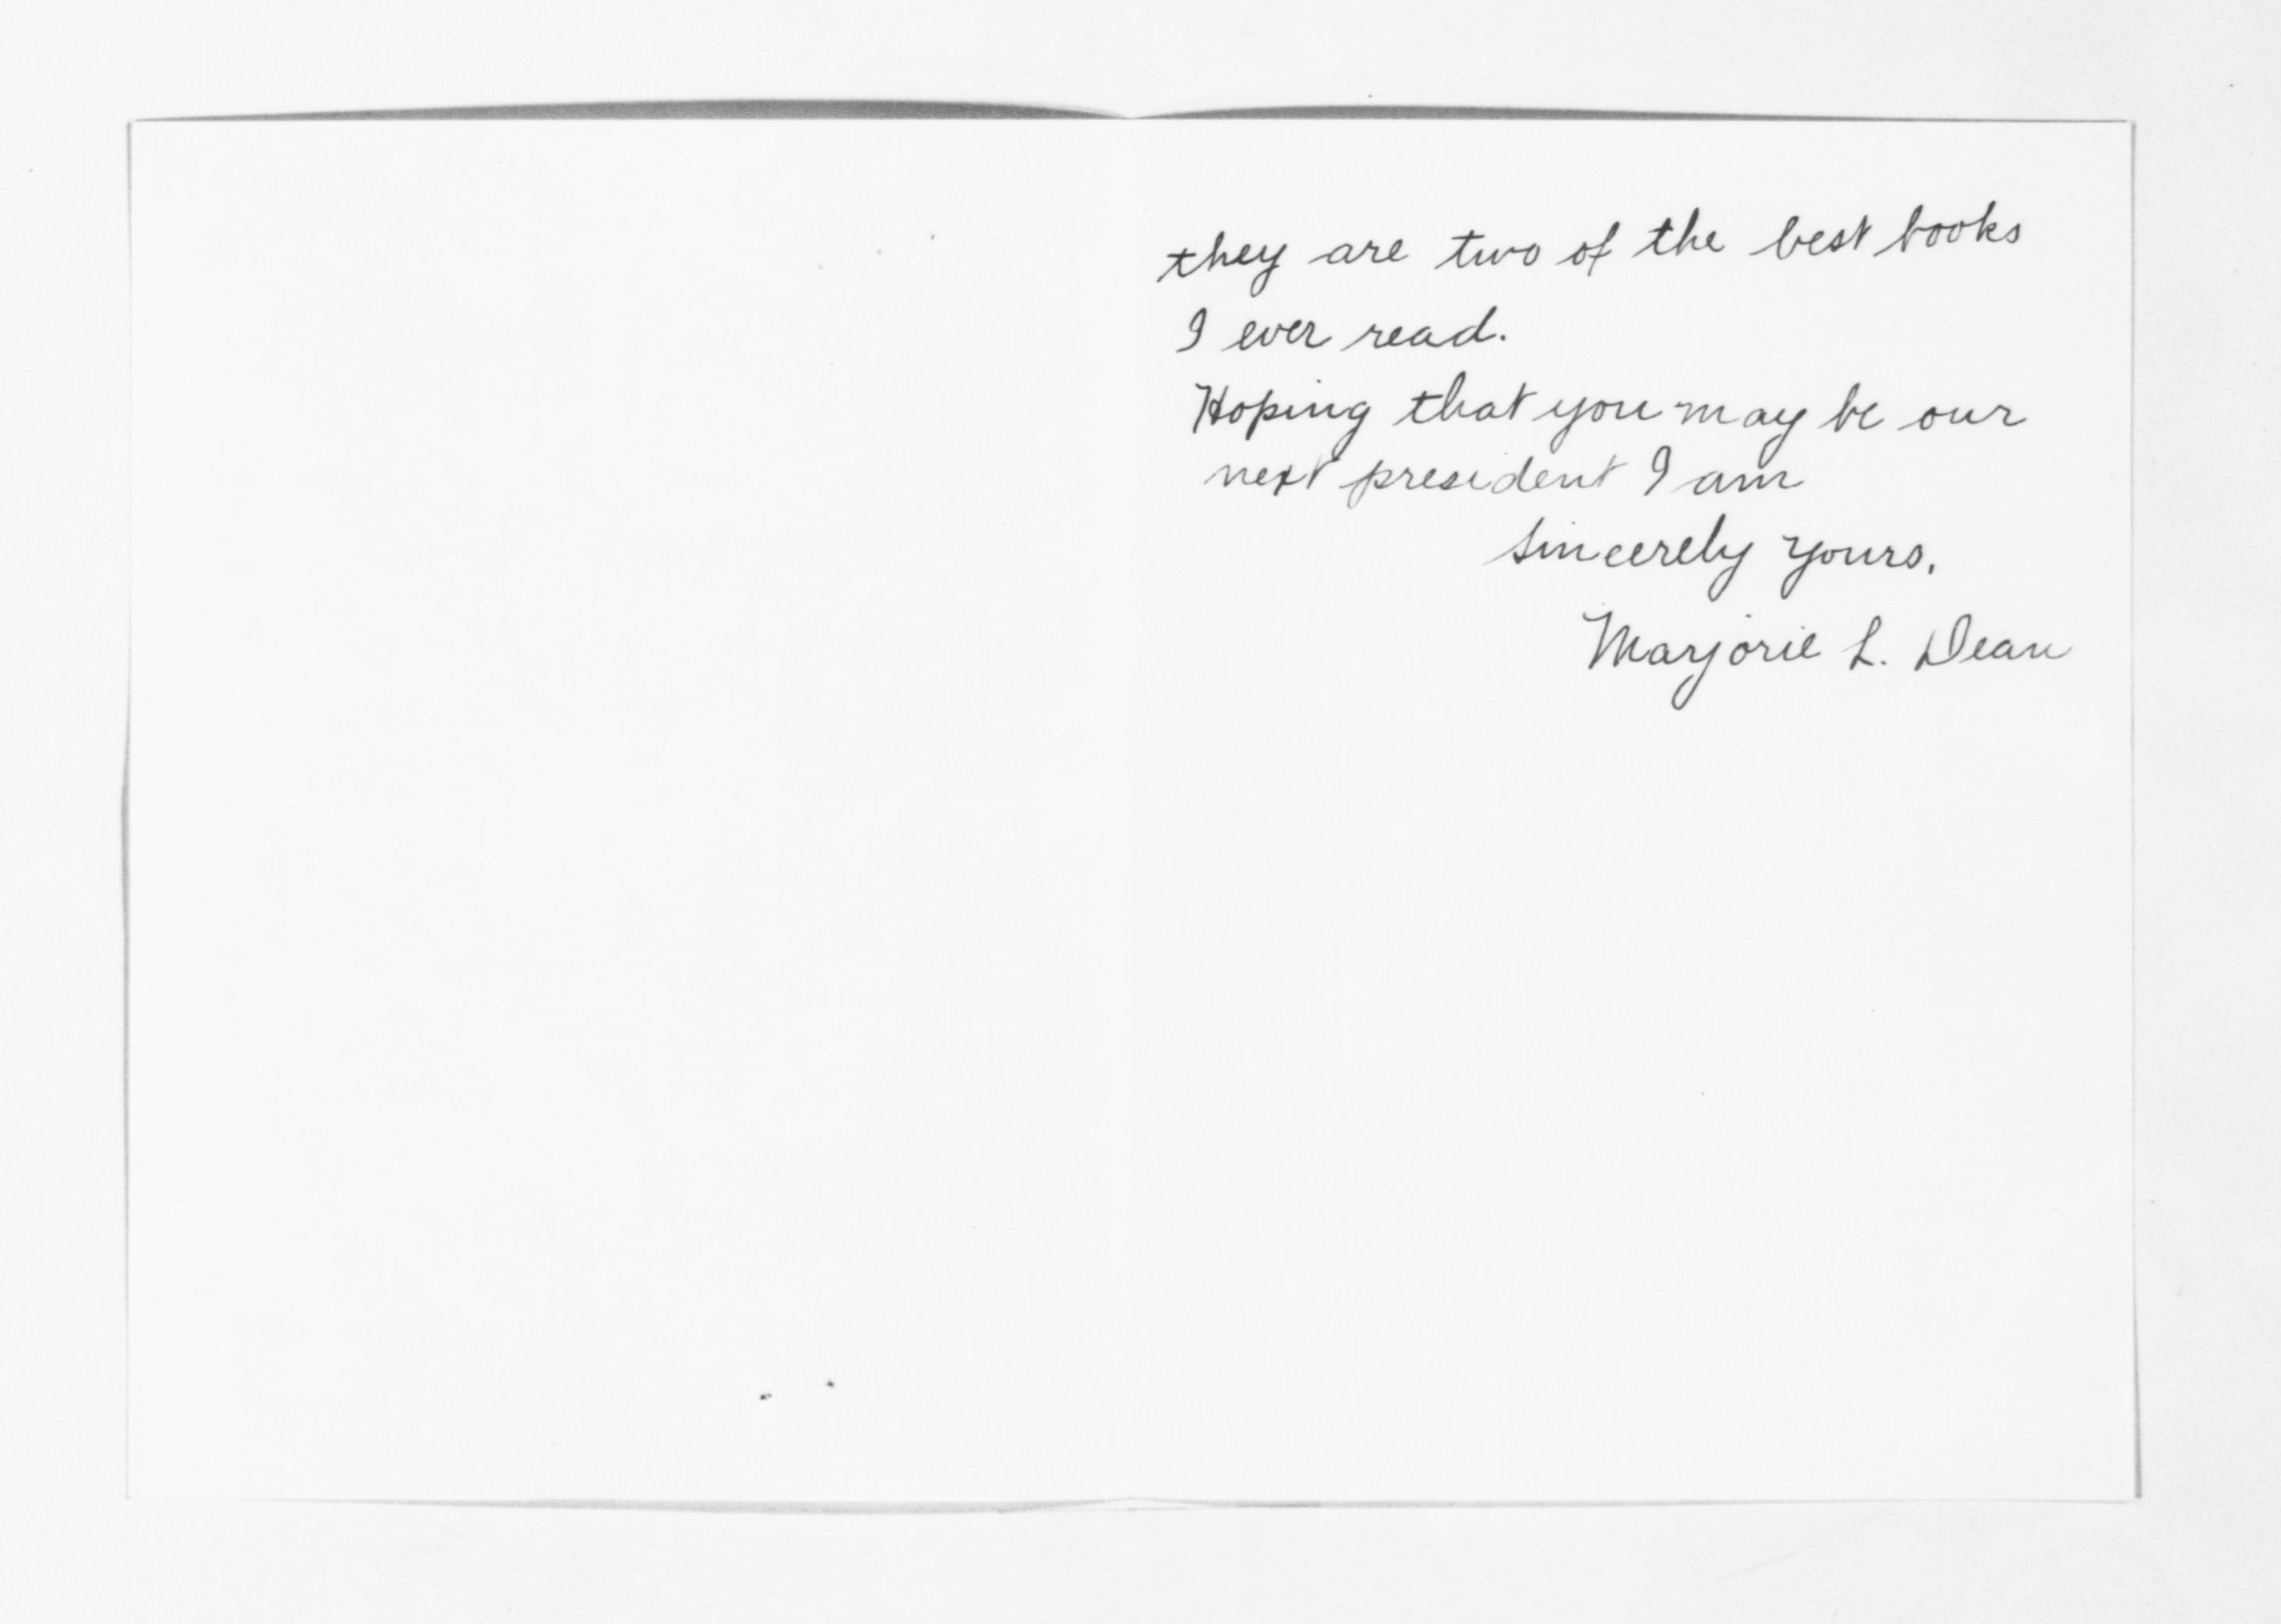 they are two of the best books
I ever read.
Hoping that you may be our
next president I am
sincerely yours,
Marjorie L. Dean